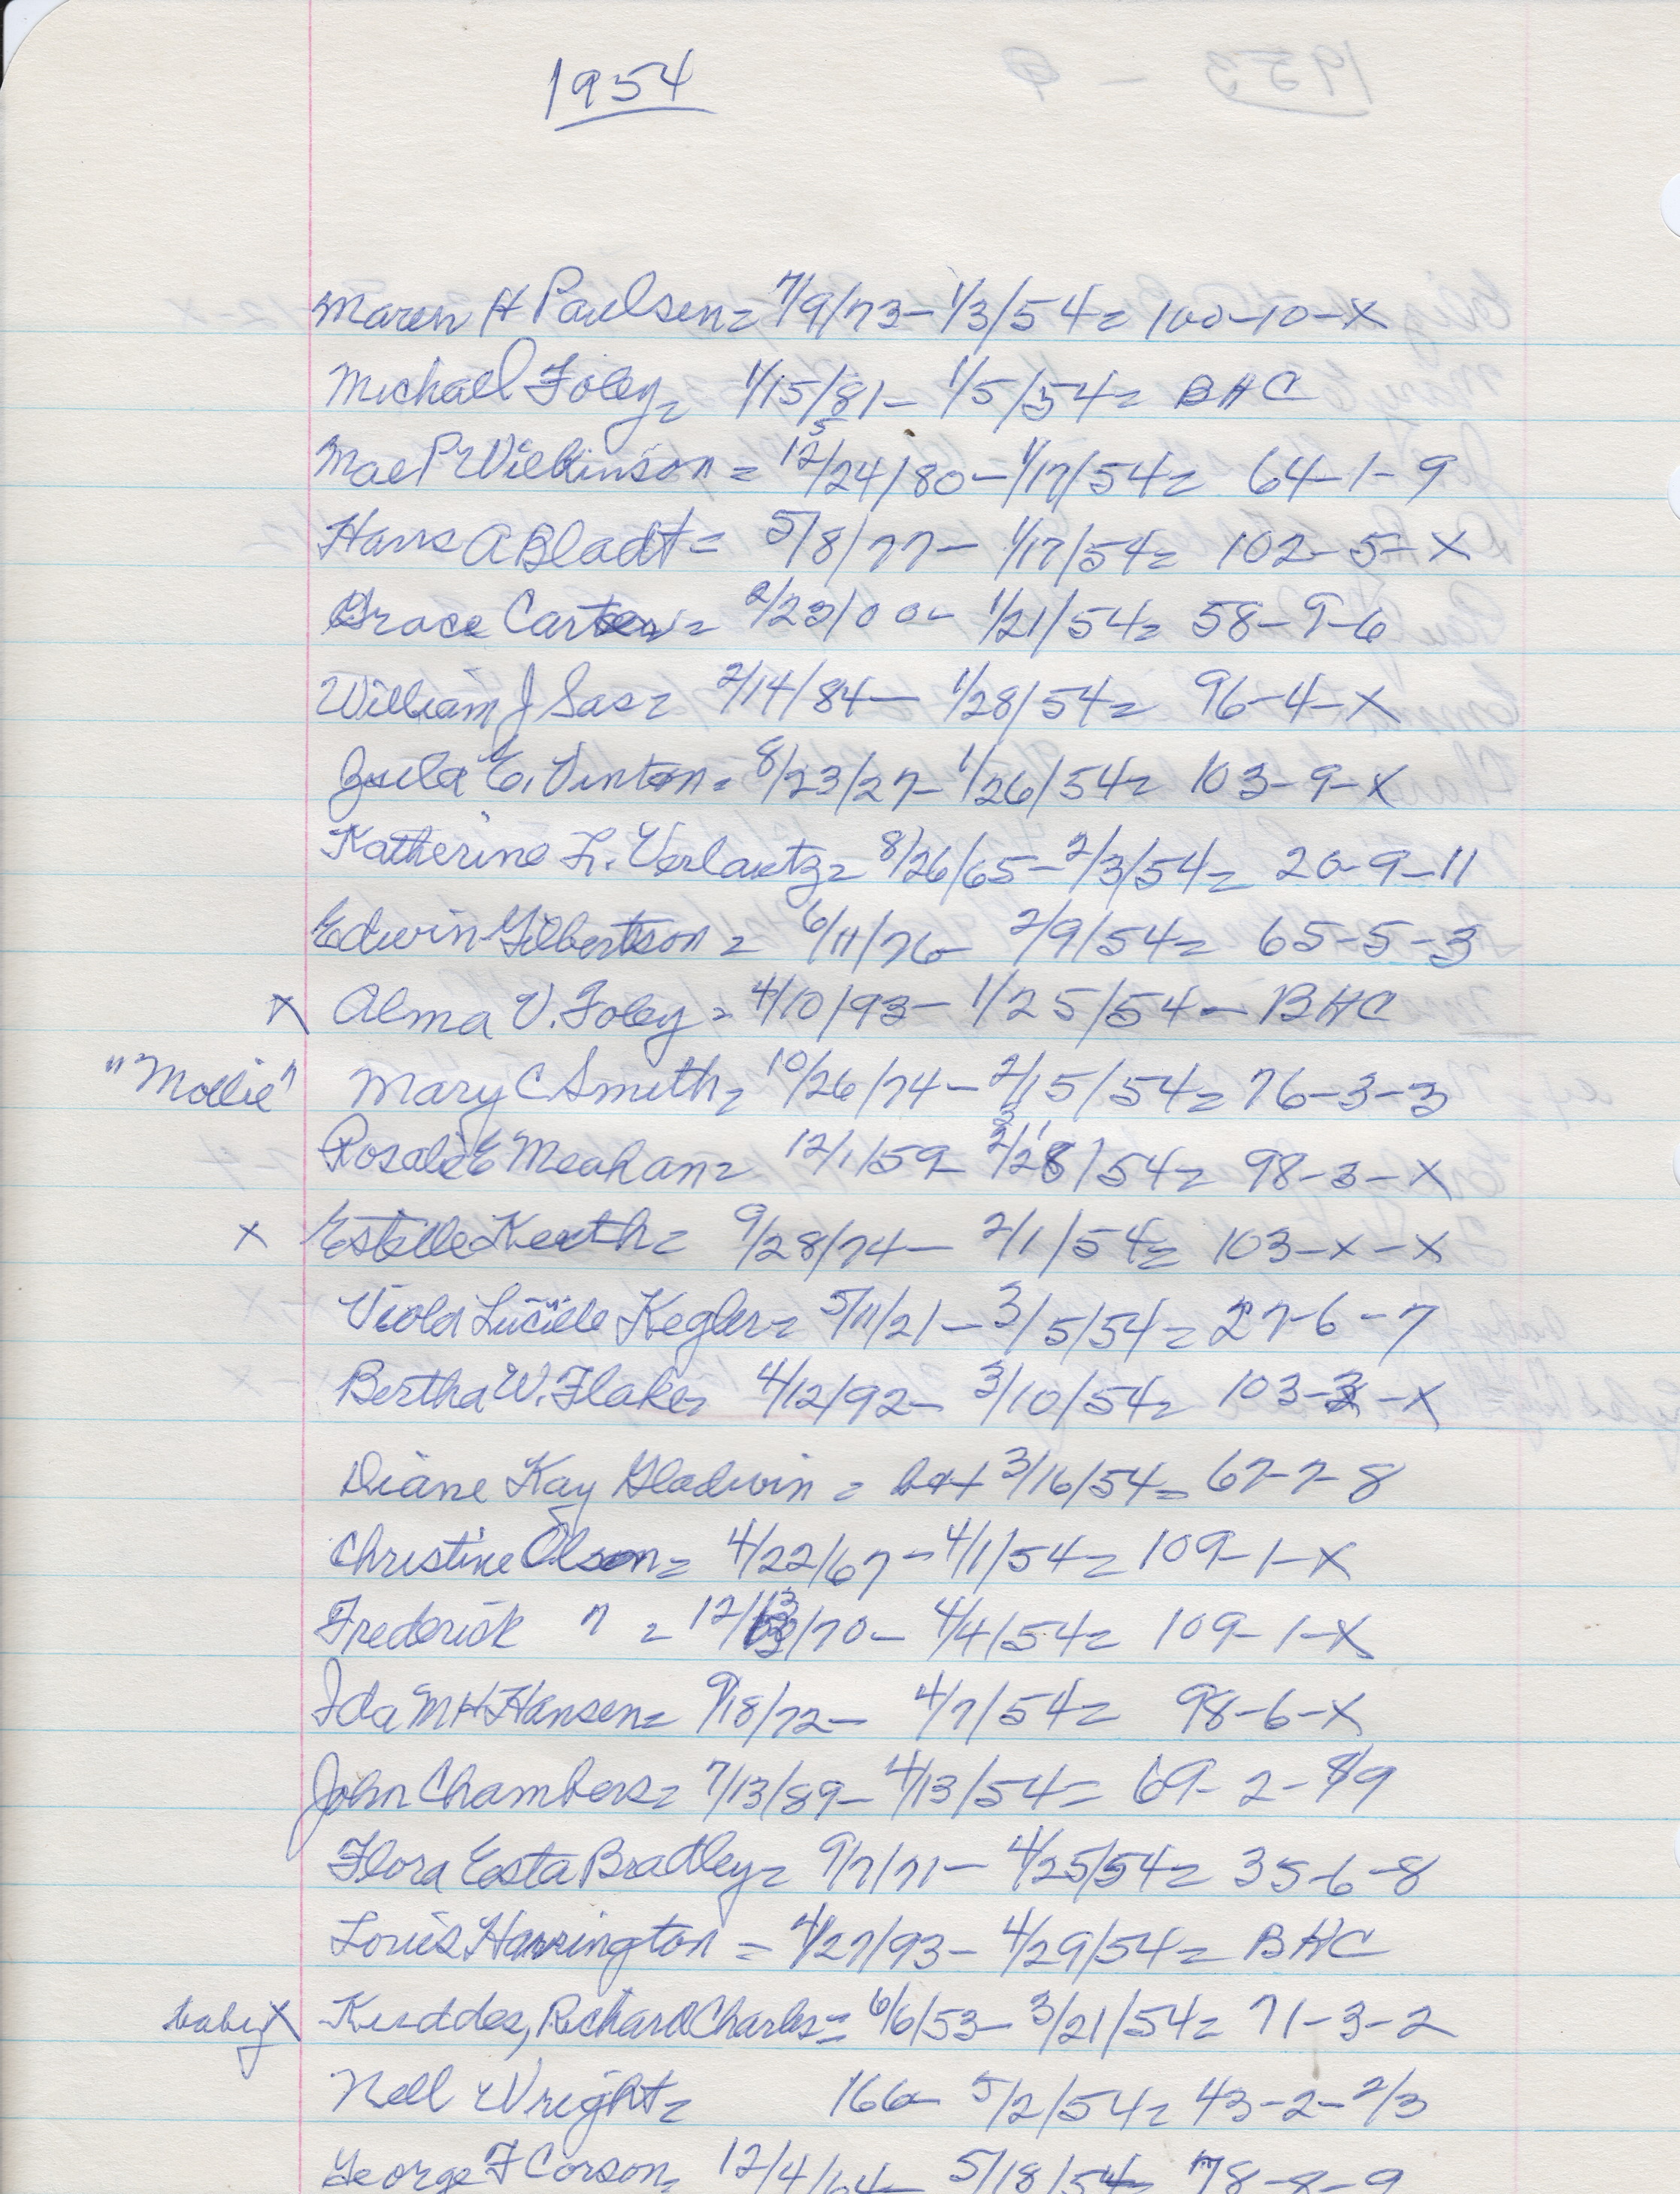 1954
Maren H Paulsen = 7/9/73 - 1/3/54 = 100-10-X
Michael Foley = 1/15/81 - 1/5/54 = BHC
5
Mae P Wilkinson = 12/24/80 - 1/17/54 = 64-1-9
Hans A Bladt = 5/8/77 - 1/17/54 = 102-5-X
Grace Carter = 2/23/00 - 1/21/54 = 58-9-6
William J Sas = 2/14/84 - 1/28/54 = 96-4-X
E. Vinton = 8/23/27 - 1/26/54 = 103-9-X
Katherine L. = 8/26/65 - 2/3/54 = 20-9-11
Edwin Gilbertson = 6/11/76 - 2/9/54 = 65-5-3
X Alma V. Foley = 4/10/93 - 1/25/54 - BHC
"Mollie" Mary C Smith = 10/26/74 - 2/15/54 = 76-3-3
Rosalie E Meahan = 12/1/59 - /54 = 98-3-X
X Estelle Keith = 9/28/74 - 2/1/54 = 103-X-X
Viola Lucille Kegler = 5/11/21 - 3/5/54 = 27-6-7
Bertha W. Flake = 4/12/92 - 3/10/54 = 103-3-X
Diane Kay Gladwin = 3/16/54 = 67-7-8
Christine Olson = 4/22/67 - 4/1/54 = 109-1-X
Frederick " = 12/13/70 - 4/4/54 = 109-1-X
Ida M H Hansen = 9/18/72 - 4/7/54 = 98-6-X
John Chambers = 7/13/89 - 4/13/54 = 69-2-8/9
Flora Easta Bradley = 9/7/71 - 4/25/54 = 35-6-8
Louis Harrington = 4/27/93 - 4/29/54 = BHC
baby X Richard Charles = 6/6/53 - 3/21/54 = 71-3-2
Nell Wright = 5/2/54 = 43-2-2/3
George F Corson = 12/4/64 - 5/18/54 = 78-8-9